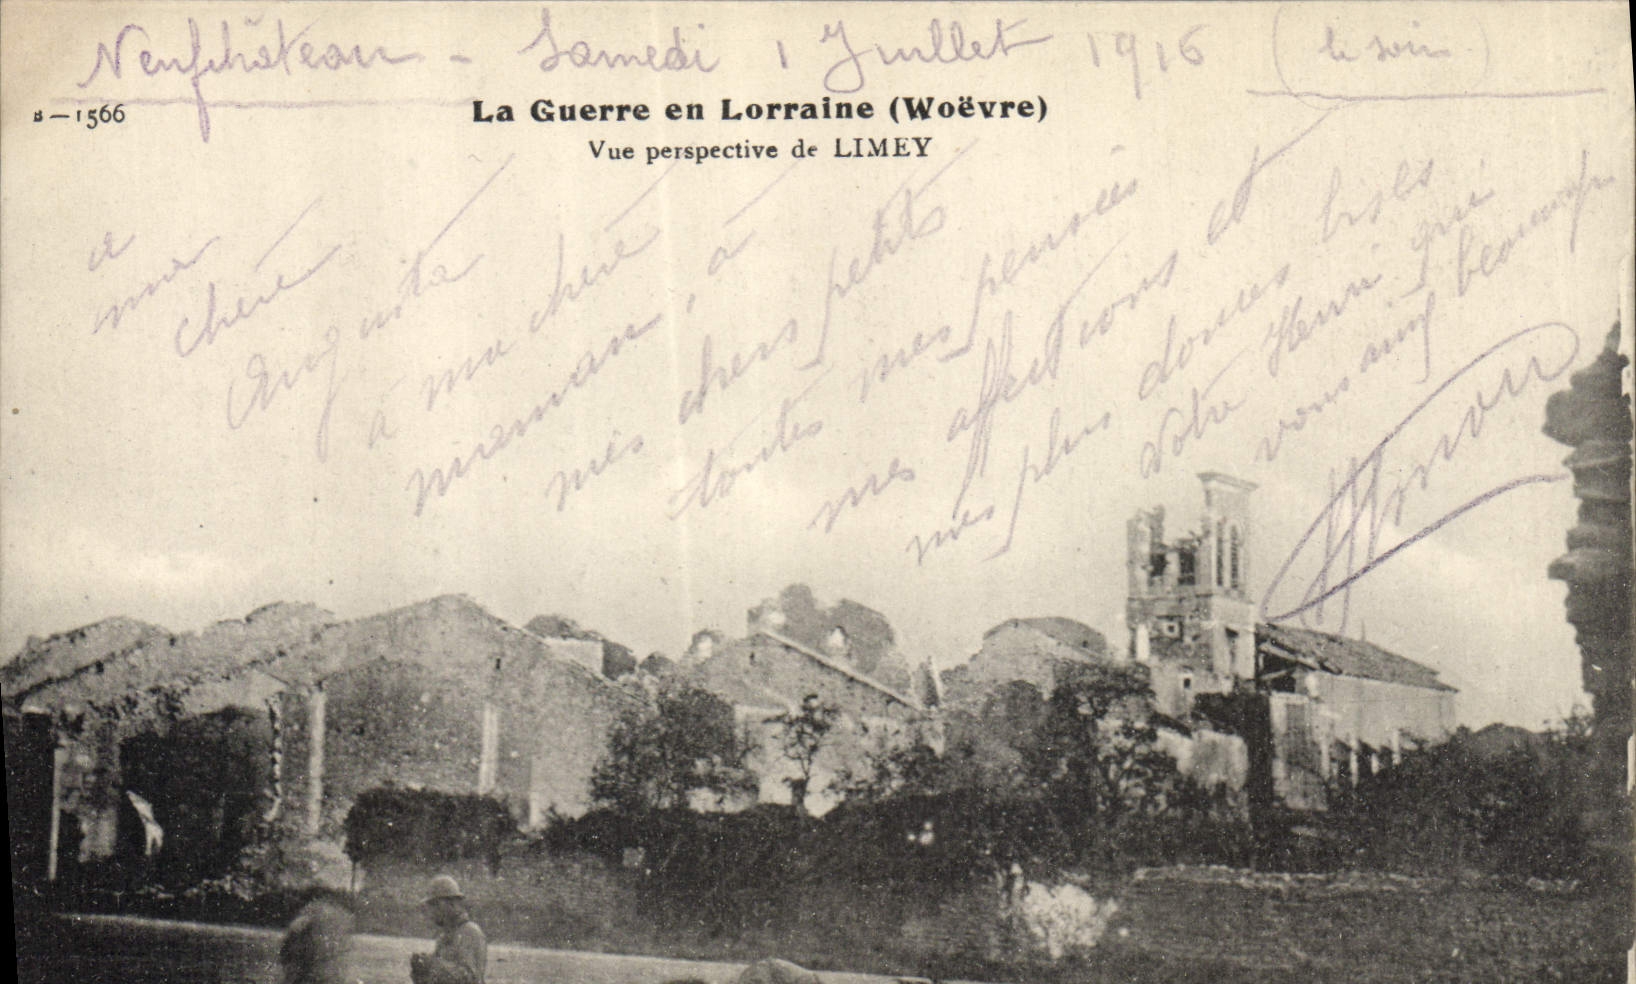 Neufchâteau - Samedi 1 Juillet 1916 (le soir)
B — 1566
La Guerre en Lorraine (Woëvre)
Vue perspective de LIMEY
a
ma
chère
Augusta
à ma chère
maman, à
mes chers petits
toutes mes pensées
mes affections et
mes plus douces bises
Votre Henri qui
vous aime beaucoup